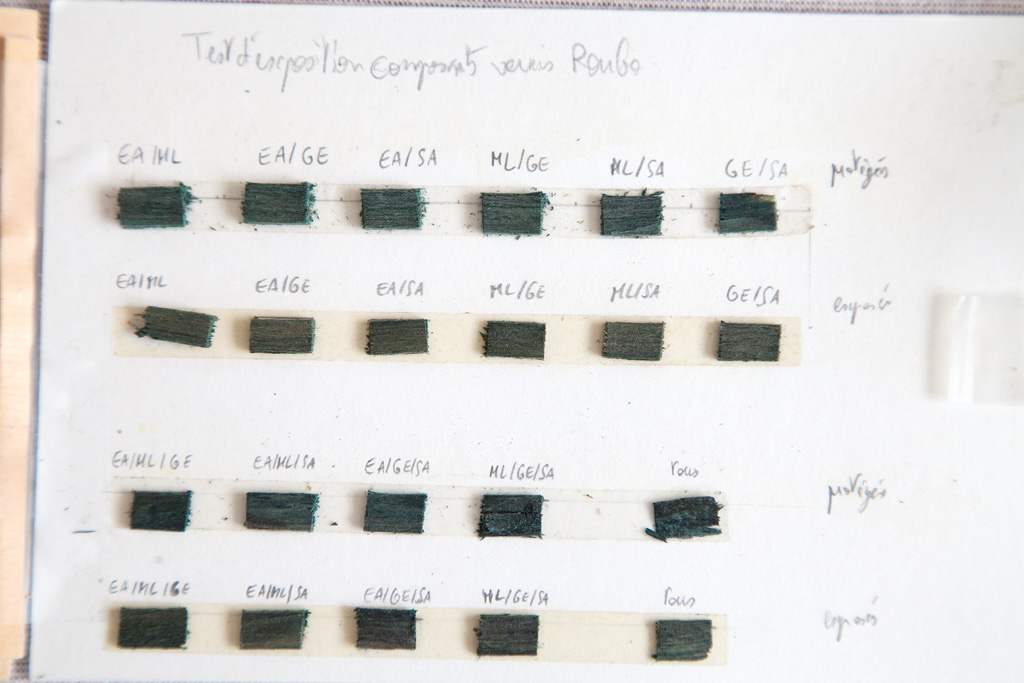 Test d'exposition composants vernis Roubo
EA/ML EA/GE EA/SA ML/GE ML/SA GE/SA protégés
EA/ML EA/GE EA/SA ML/GE ML/SA GE/SA exposés
EA/ML/GE EA/ML/SA EA/GE/SA ML/GE/SA Tous protégés
EA/ML/GE EA/ML/SA EA/GE/SA ML/GE/SA Tous exposés